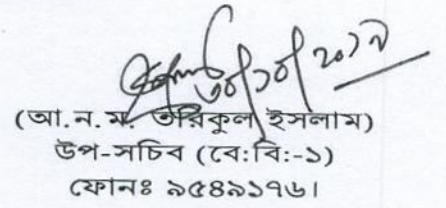 ৩০/১০/২০১৭
(আ.ন.ম. তরিকুল ইসলাম)
উপ-সচিব (বে:বি:-১)
ফোনঃ ৯৫৪৯১৭৬।